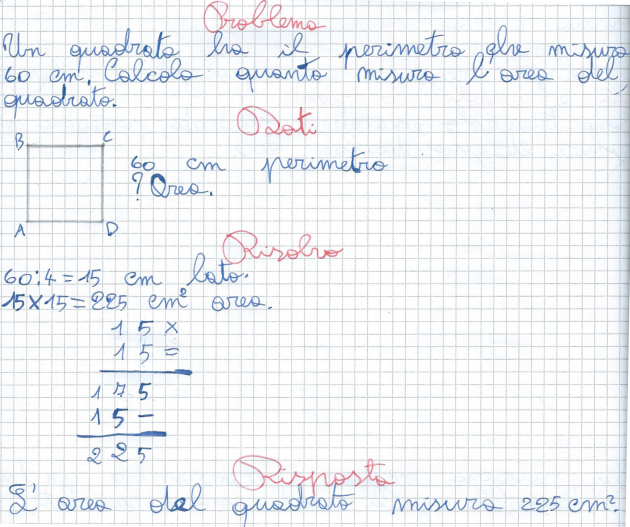 Problema
Un quadrato ha il perimetro che misura
60 cm. Calcola quanto misura l'area del
quadrato.
Dati
B C
60 cm perimetro
? Area.
A D
Risolvo
60:4=15 cm lato.
15x15=225 cm² area.
15x
15=
175
15-
225
Risposta
L'area del quadrato misura 225 cm².